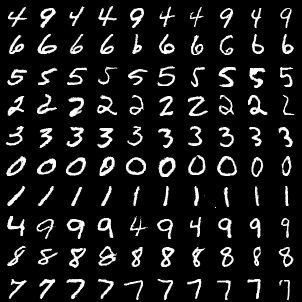 4 9 4 4 9 4 4 9 4 9
6 6 6 6 6 6 6 6 6 6
5 5 5 5 5 5 5 5 5 5
2 2 2 2 2 2 2 2 2 2
3 3 3 3 3 3 3 3 3 3
0 0 0 0 0 0 0 0 0 0
1 1 1 1 1 1 1 1 1 1
4 9 9 9 4 9 4 9 9 9
8 8 8 8 8 8 8 8 8 8
7 7 7 7 7 7 7 7 7 7